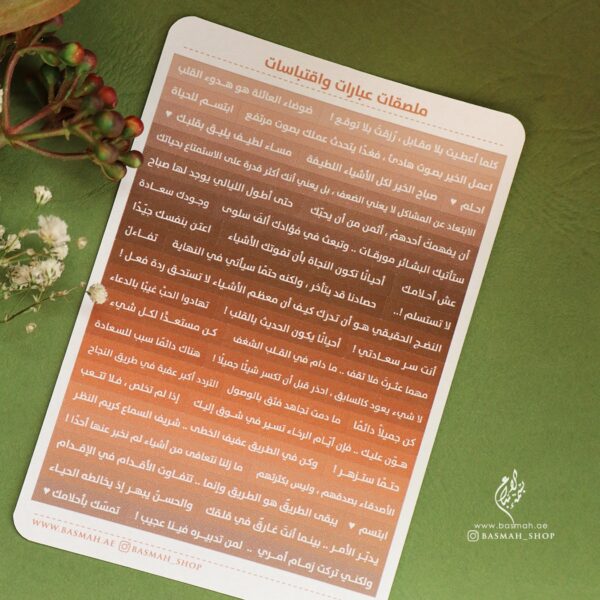 ملصقات عبارات واقتباسات
كلما أعطيت بلا مقابل ، رُزقتَ بلا توقع ! ضوضاء العائلة هو هدوء القلب
اعمل الخير بصوت هادئ ، فغدًا يتحدث عملك بصوت مرتفع ابتسم للحياة
احلم ♥ صباح الخير لكل الأشياء اللطيفة مساء لطيف يليق بقلبك ♥
الابتعاد عن المشاكل لا يعني الضعف ، بل يعني أنك أكثر قدرة على الاستمتاع بحياتك
أن يفهمك أحدهم ؛ أثمن من أن يحبّك حتى أطول الليالي يوجد لها صباح
ستأتيك البشائر مورقات .. وتبعث في فؤادك ألف سلوى وجودك سعادة
عش أحلامك أحيانًا تكون النجاة بأن تفوتك الأشياء اعتن بنفسك جيّدًا
لا تستسلم ..! حصادنا قد يتأخر ، ولكنه حتمًا سيأتي في النهاية تفاءل
النضج الحقيقي هو أن تدرك كيف أن معظم الأشياء لا تستحق ردة فعل !
أنت سر سعادتي ! أحيانًا يكون الحديث بالقلب ! تهادوا الحبّ غيبًا بالدعاء
مهما عثرت فلا تقف .. ما دام في القلب الشغف كن مستعدًّا لكل شيء
لا شيء يعود كالسابق ، احذر قبل أن تكسر شيئًا جميلًا ! هناك دائمًا سبب للسعادة
كن جميلًا دائمًا ما دمت تجاهد فثق بالوصول التردد أكبر عقبة في طريق النجاح
هوّن عليك .. فإن أيّام الرخاء تسير في شوق إليك إذا لم تخلص ، فلا تتعب
حتمًا ستزهر ! وكن في الطريق عفيف الخطى .. شريف السماع كريم النظر
الأصدقاء بصدقهم ، وليس بكثرتهم ما زلنا نتعافى من أشياء لم نخبر عنها أحدًا !
ابتسم ♥ يبقى الطريقُ هو الطريق وإنما .. تتفاوت الأقدام في الإقدام
يدبّر الأمر .. بينما أنت غارقٌ في قلقك والحسنُ يبهر إذ يخالطه الحياء
ولكني تركت زمام أمري .. لمن تدبيره فينا عجيب ! تمسّك بأحلامك ♥
WWW.BASMAH.AE BASMAH_SHOP
www.basmah.ae
BASMAH_SHOP